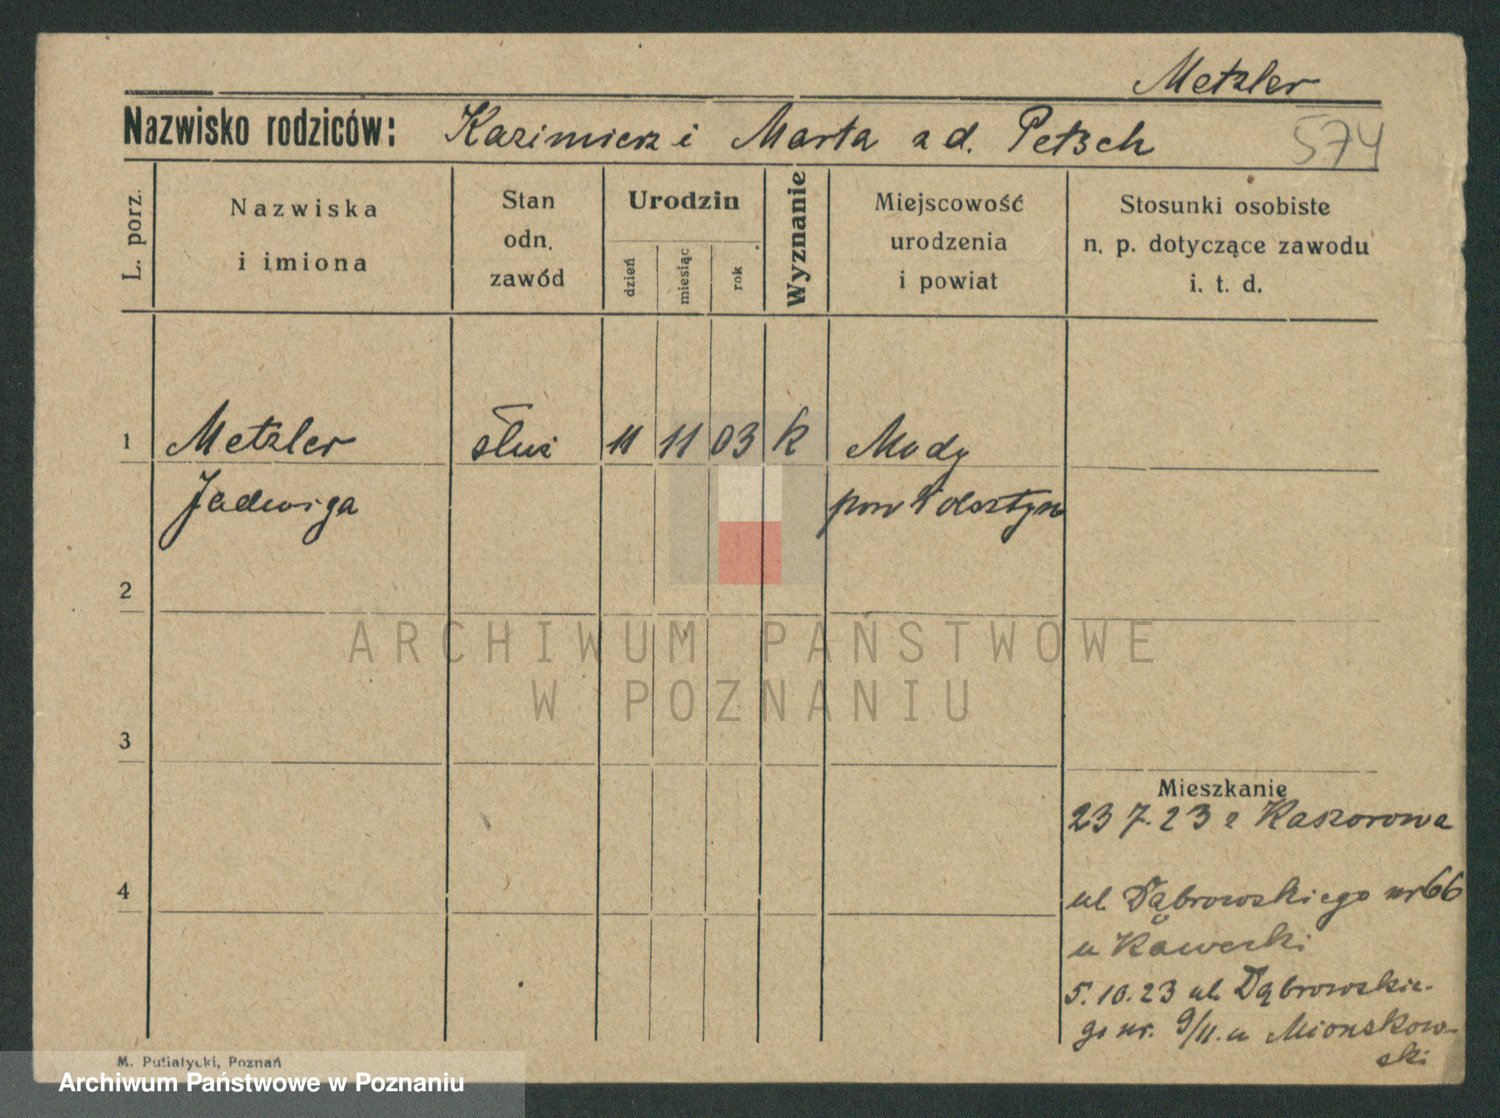 Metzler
Nazwisko rodziców: Kazimierz i Marta z d. Petzch
574
L. porz.
Nazwiska
i imiona
Stan
odn.
zawód
Urodzin
dzień
miesiąc
rok
Wyznanie
Miejscowość
urodzenia
i powiat
Stosunki osobiste
n. p. dotyczące zawodu
i. t. d.
1 Metzler służ 11 11 03 k Mody
Jadwiga pow Wolsztyn
2
3
4
ARCHIWUM PAŃSTWOWE
W POZNANIU
Mieszkanie
23 7. 23 z Kaszorowa
ul. Dąbrowskiego nr 66
u Kawecki
5. 10. 23 ul. Dąbrowskie-
go nr. 9/11. u Mionskow-
ski
M. Putiatycki, Poznań
Archiwum Państwowe w Poznaniu